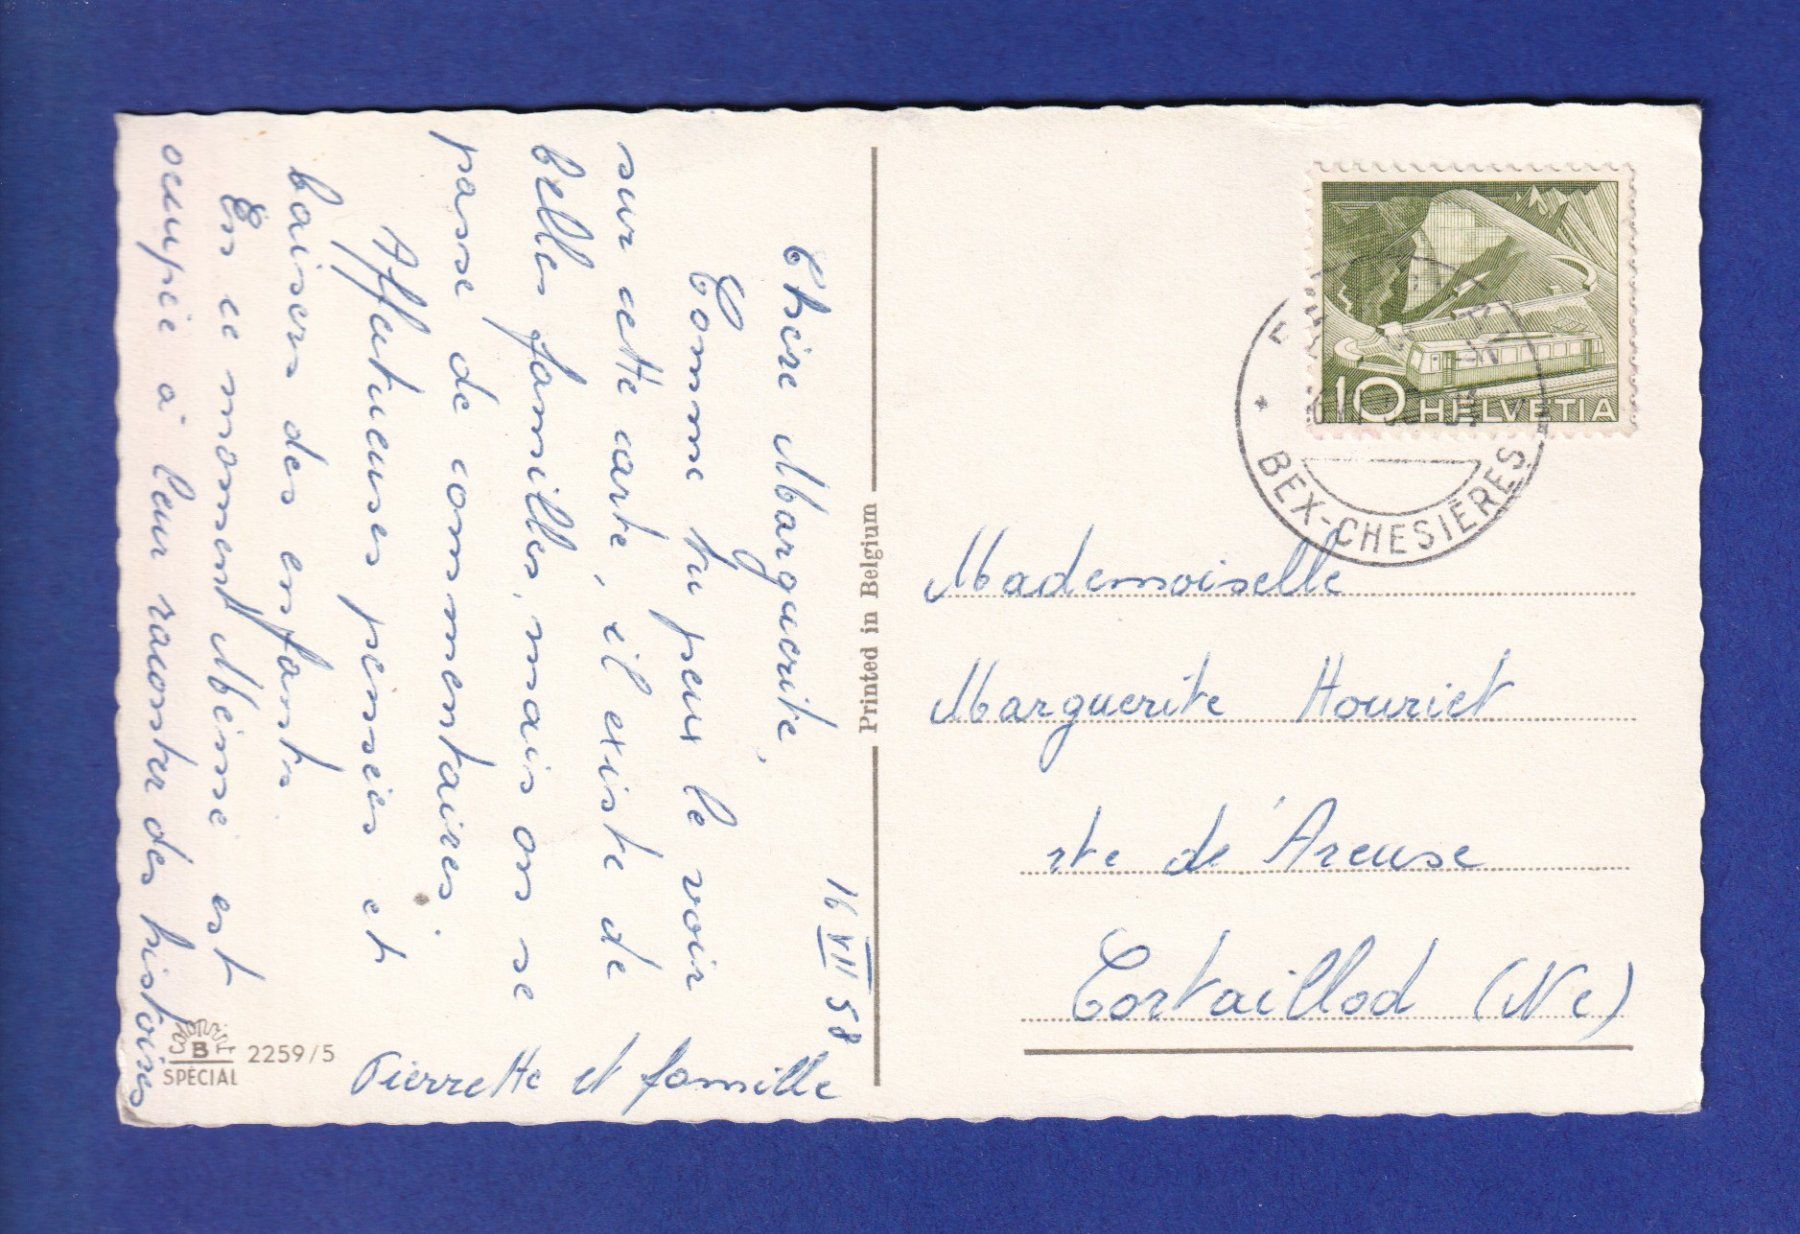 16 VII 58
Chère Marguerite,
Comme tu peux le voir
sur cette carte, il existe de
belles familles, mais on se
passe de commentaires.
Affectueuses pensées et
baisers des enfants
En ce moment Meine est
occupée à leur raconter des histoires
Pierrette et famille
Printed in Belgium
COLORPRINT
B
SPÉCIAL
2259/5
10 HELVETIA
BEX-CHESIÈRES
Mademoiselle
Marguerite Houriet
rte de l'Areuse
Cortaillod (Ne)